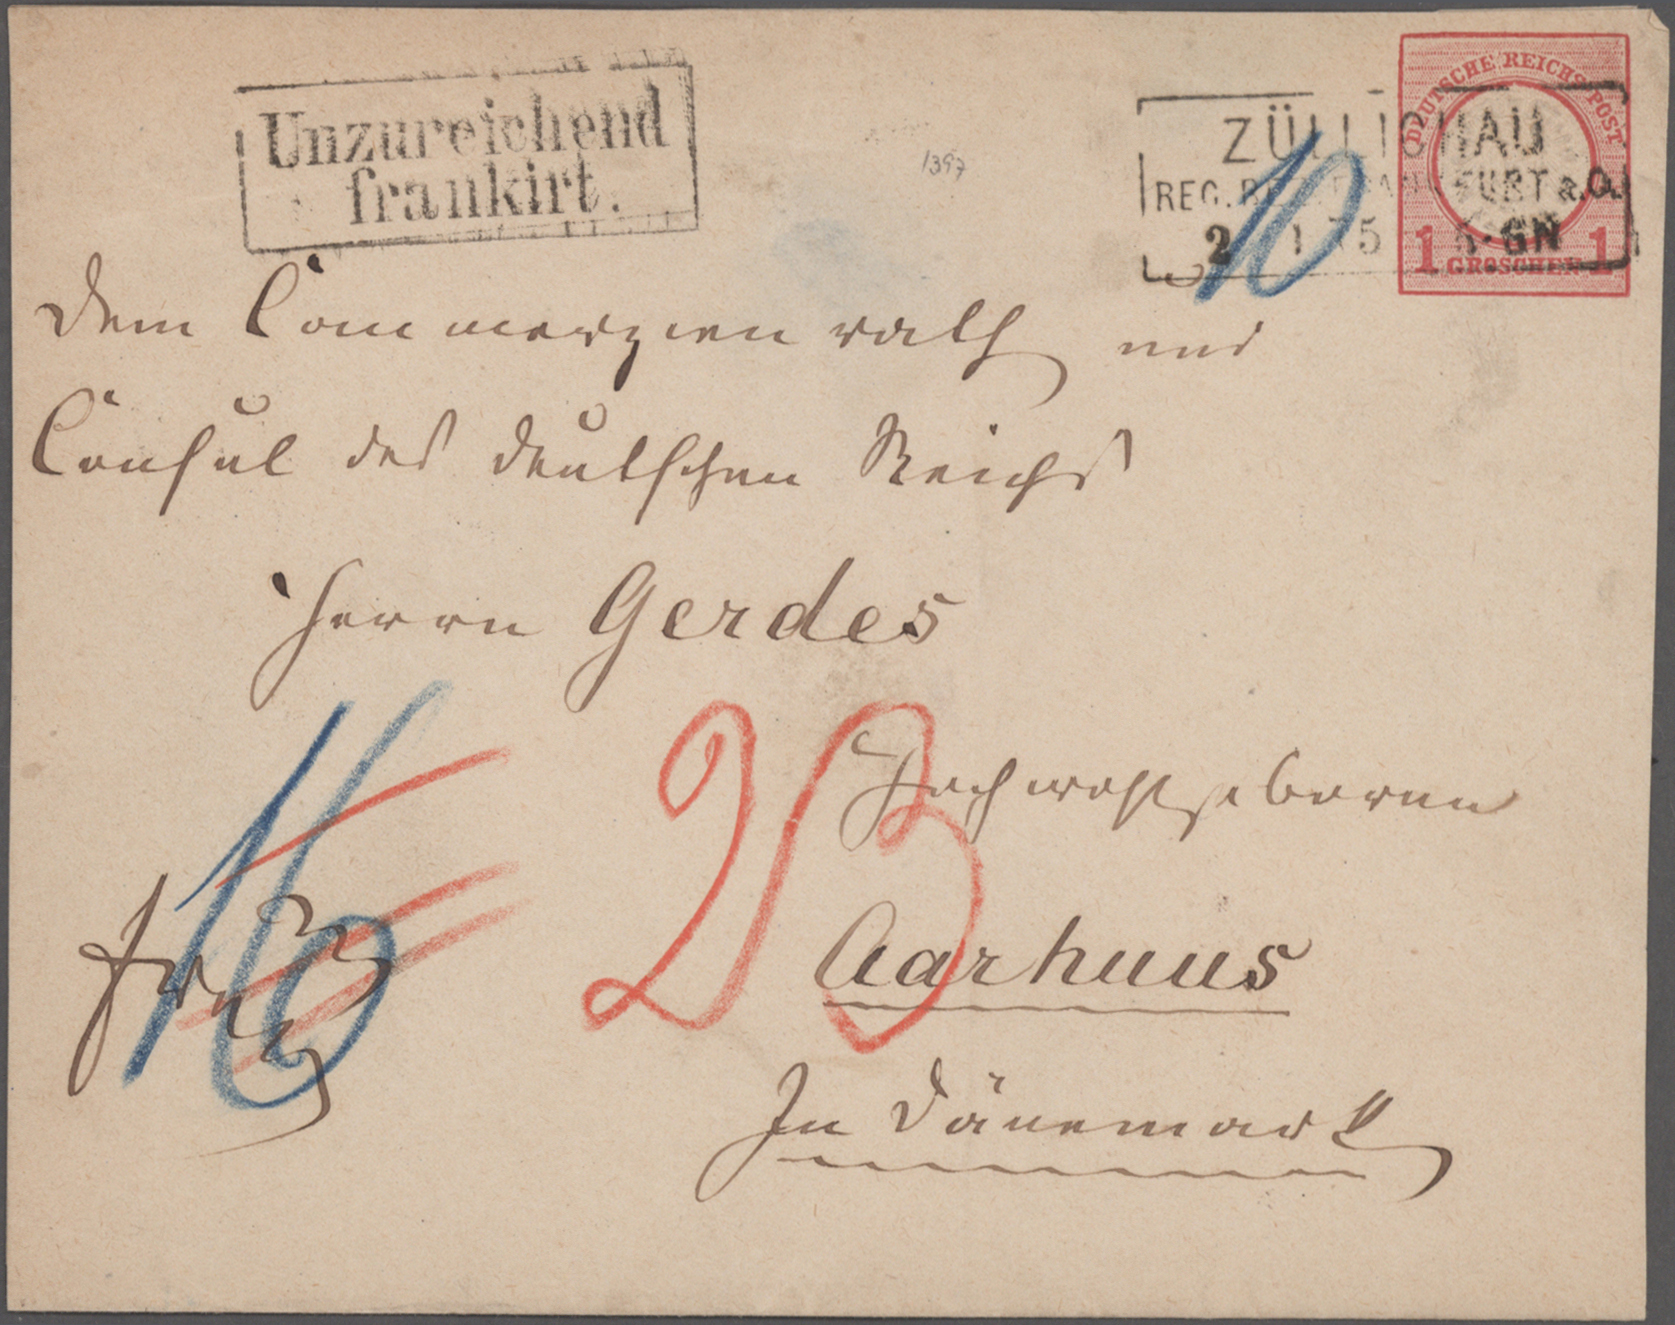 Unzureichend
frankirt.
1397
DEUTSCHE REICHS-POST
1 GROSCHEN 1
ZÜLLICHAU
REG. BEZ. FRANKFURT a.O.
2 1 75 5-6N
10
Dem Commerzienrath und
Consul des deutschen Reichs
Herrn Gerdes
Hochwohlgeboren
16
23
Aarhuus
In Dänemark